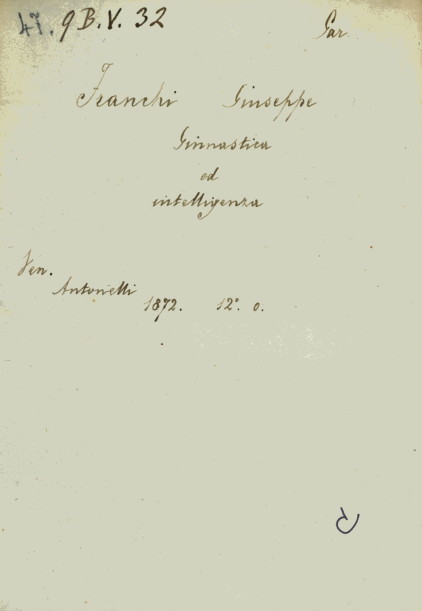 47. 9 B. V. 32 Gar
Franchi Giuseppe
Ginnastica
ed
intelligenza
Ven.
Antonelli
1872. 12º. o.